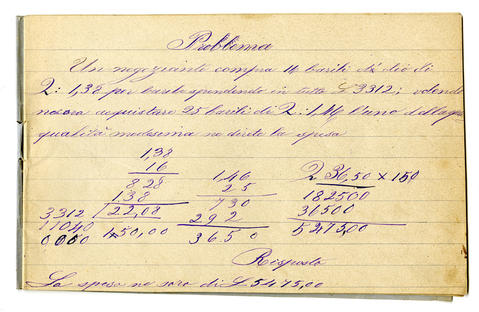 Problema
Un negoziante compra 16 barili di olio di
Q: 1,38 per barile spendendo in tutto £ 3312; volendo
ne ora acquistare 25 barili di Q: 1,46 l'uno della
qualità medesima ne direte la spesa
1,38
16
828
138
3312 22,08
11040
0000 150,00
146
25
730
292
3650
Q 36,50 × 150
182500
36500
5475,00
Risposta
La spesa ne sarà di £ 5475,00